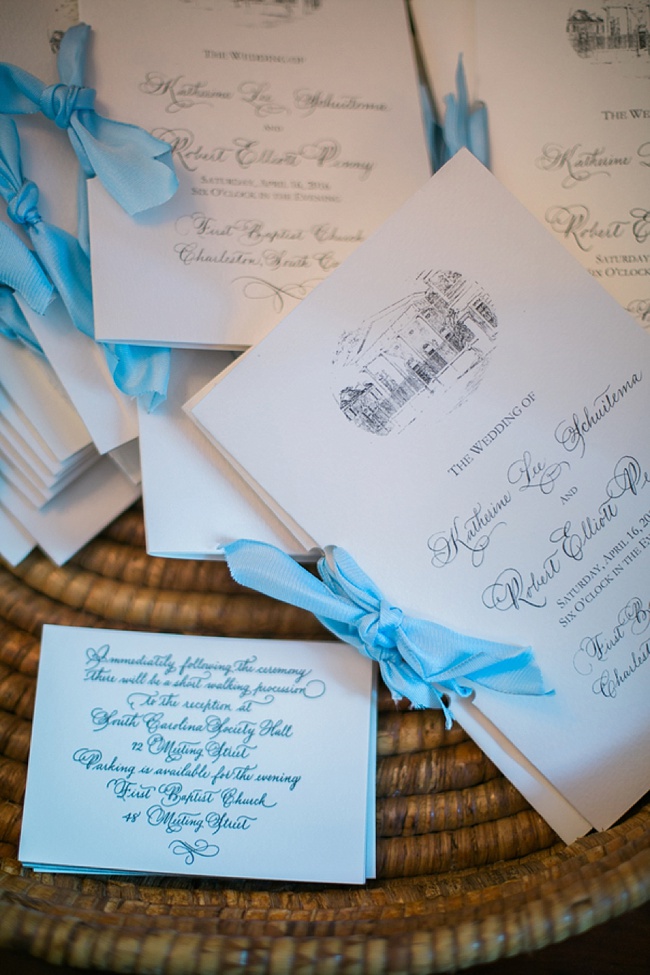 The Wedding of
Katherine Lee Schuitema
and
Robert Elliott Penny
Saturday, April 16, 2016
Six O'clock in the Evening
First Baptist Church
Charleston, South Ca
The We
Katherine L
Robert E
Saturda
Six O'clock
The Wedding of
Katherine Lee Schuitema
and
Robert Elliott Pe
Saturday, April 16, 20
Six O'clock in the Eve
First Ba
Charlest
Immediately following the ceremony
there will be a short walking procession
to the reception at
South Carolina Society Hall
72 Meeting Street
Parking is available for the evening
First Baptist Church
48 Meeting Street